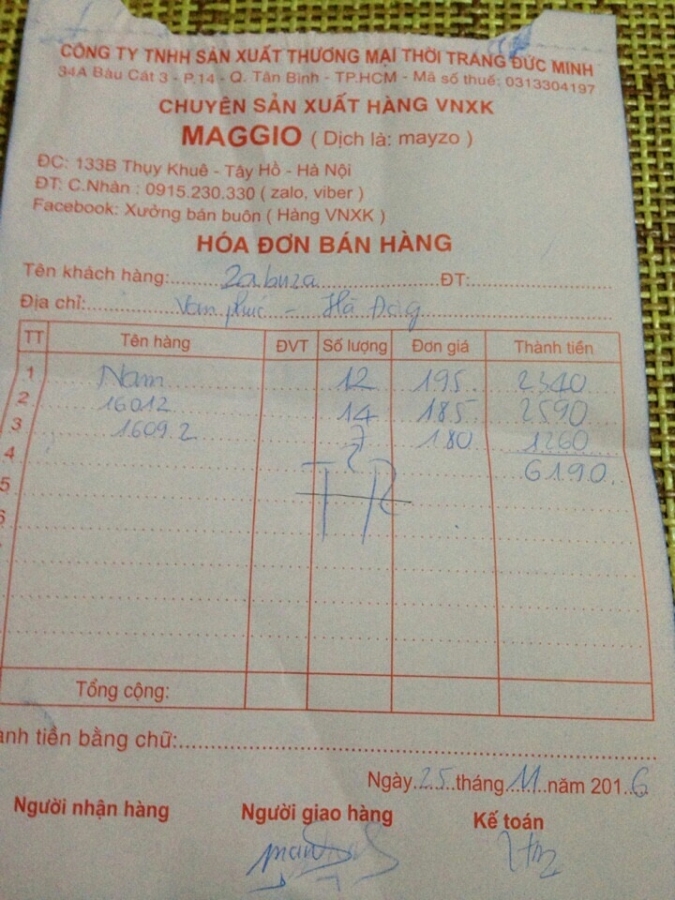 CÔNG TY TNHH SẢN XUẤT THƯƠNG MẠI THỜI TRANG ĐỨC MINH
34A Bàu Cát 3 - P.14 - Q. Tân Bình - TP.HCM - Mã số thuế: 0313304197
CHUYÊN SẢN XUẤT HÀNG VNXK
MAGGIO ( Dịch là: mayzo )
ĐC: 133B Thụy Khuê - Tây Hồ - Hà Nội
ĐT: C.Nhàn : 0915.230.330 ( zalo, viber )
Facebook: Xưởng bán buôn ( Hàng VNXK )
HÓA ĐƠN BÁN HÀNG
Tên khách hàng: Zabuza ĐT:
Địa chỉ: Vạn phúc - Hà Đông
TT Tên hàng ĐVT Số lượng Đơn giá Thành tiền
1 Nam 12 195 2340
2 16012 14 185 2590
3 1609.2 7 180 1260
4 6190
5
6
Tổng cộng:
ành tiền bằng chữ:
Ngày 25 tháng 11 năm 2016
Người nhận hàng Người giao hàng Kế toán